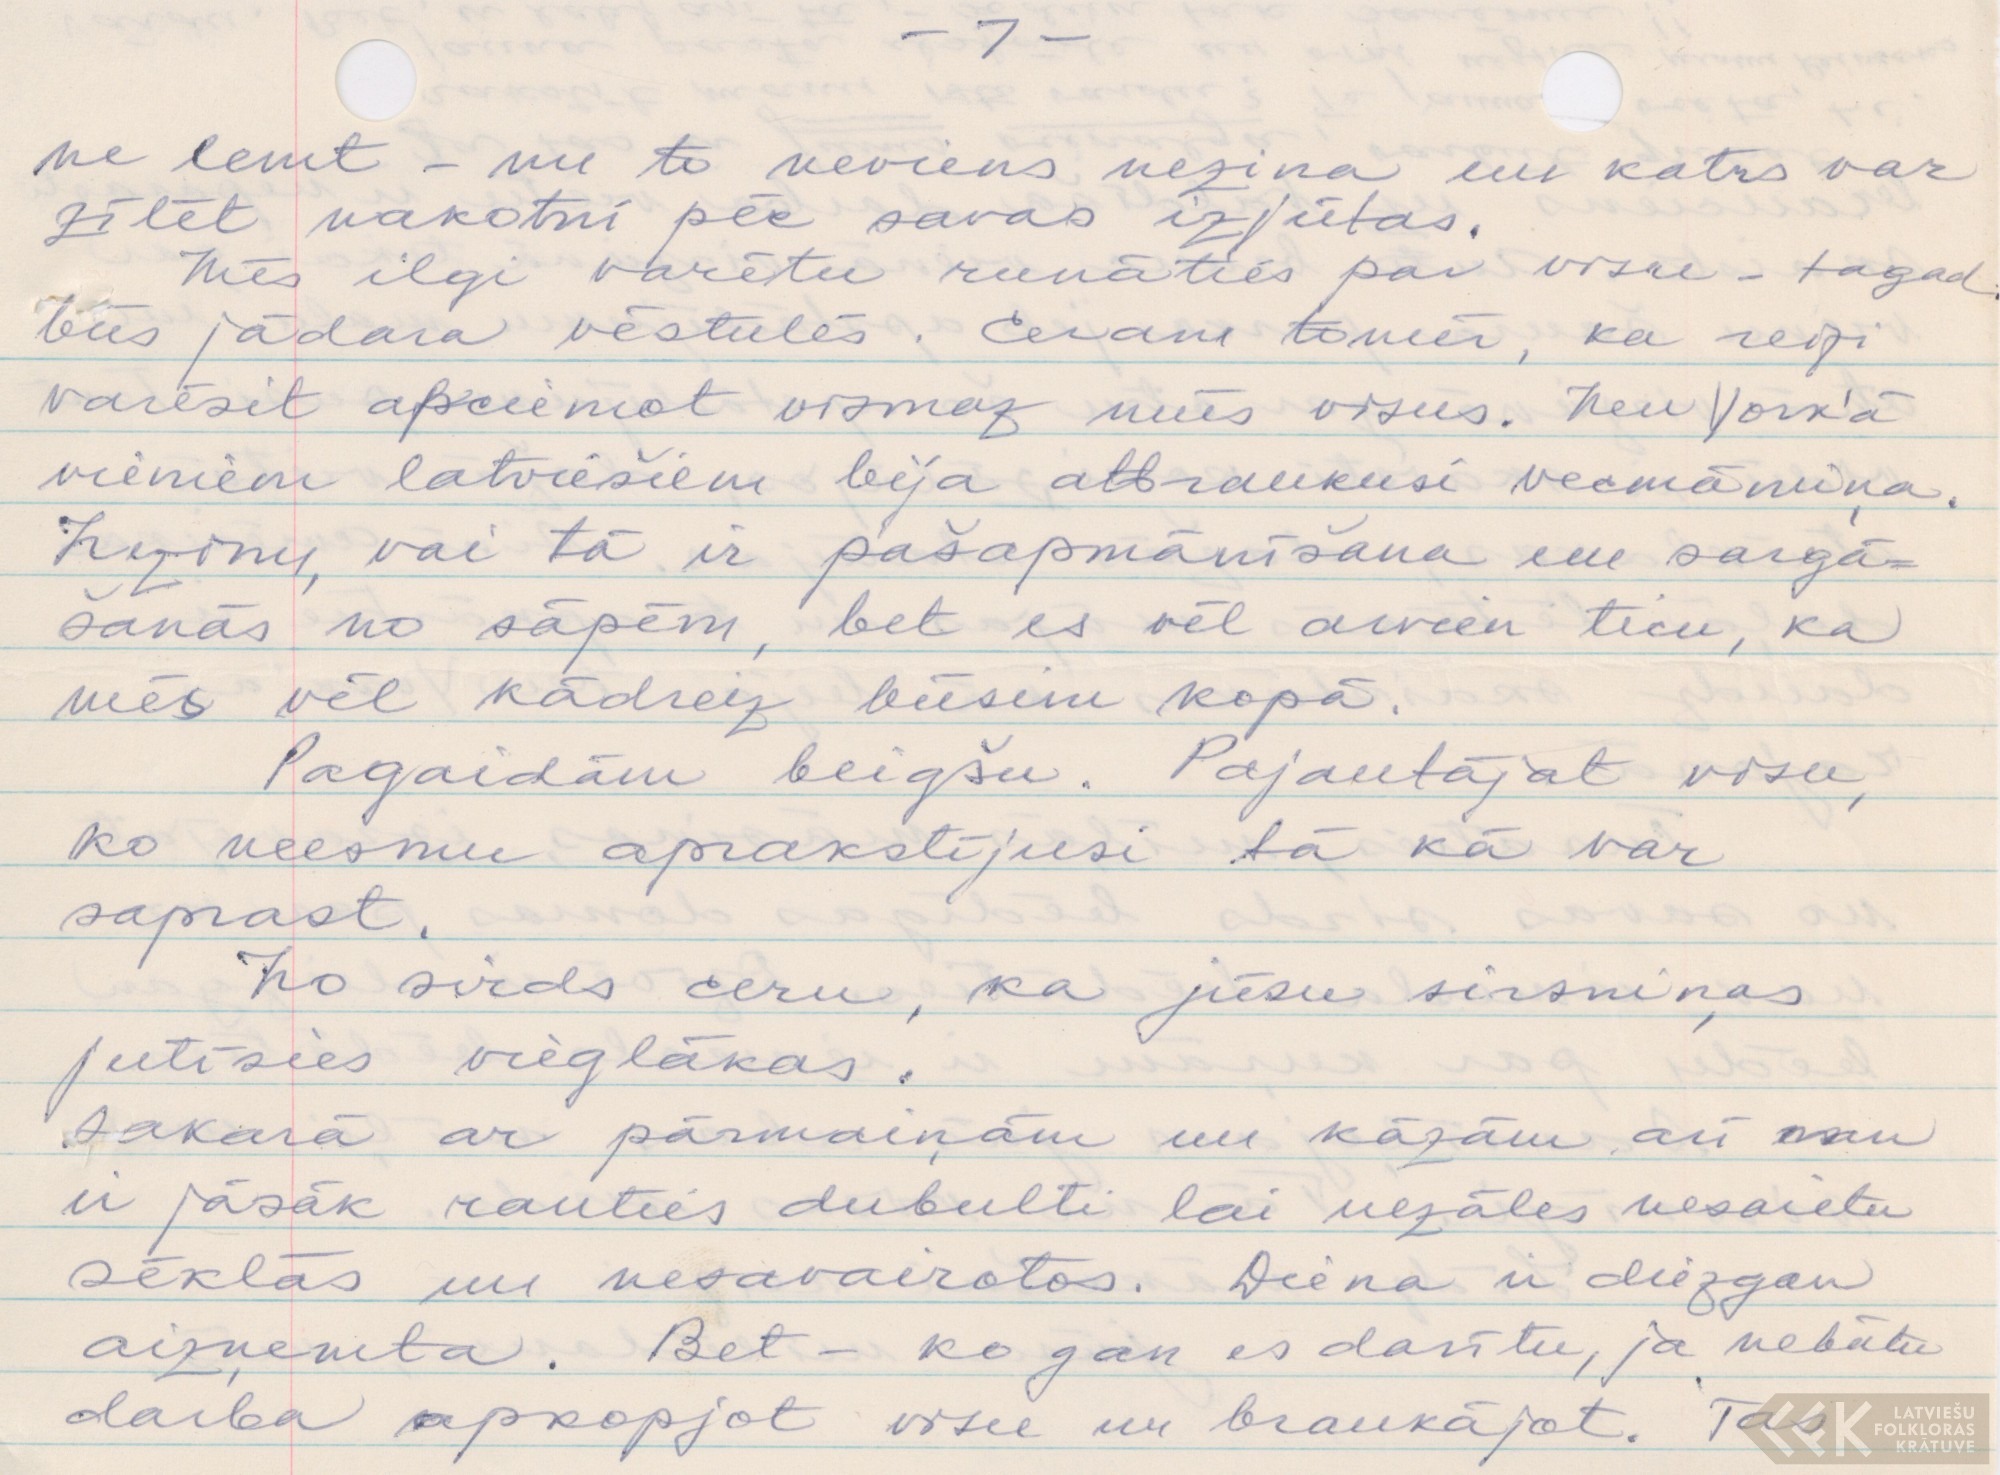 - 7 -
ne lemt - nu to neviens nezina un katrs var
zīlēt nākotni pēc savas izjūtas.
Mēs ilgi varētu runāties par visu - tagad
būs jādara vēstulēs. Ceram tomēr, ka reizi
varēsit apciemot vismaz mūs visus. New York'ā
vieniem latviešiem bija atbraukusi vecmāmiņa.
Nezinu, vai tā ir pašapmānīšana un sargā=
šanās no sāpēm, bet es vēl arvien ticu, ka
mēs vēl kādreiz būsim kopā.
Pagaidām beigšu. Pajautājat visu,
ko neesmu aprakstījusi tā kā var
saprast.
No sirds ceru, ka jūsu sirsniņas
jutīsies vieglākas.
Sakarā ar pārmaiņām un kāzām arī man
ir jāsāk rauties dubulti lai nezāles nesaietu
sēklās un nesavairotos. Diena ir diezgan
aizņemta. Bet - ko gan es darītu, ja nebūtu
darba apkopjot visu un braukājot. Tas
LATVIEŠU
FOLKLORAS
KRĀTUVE